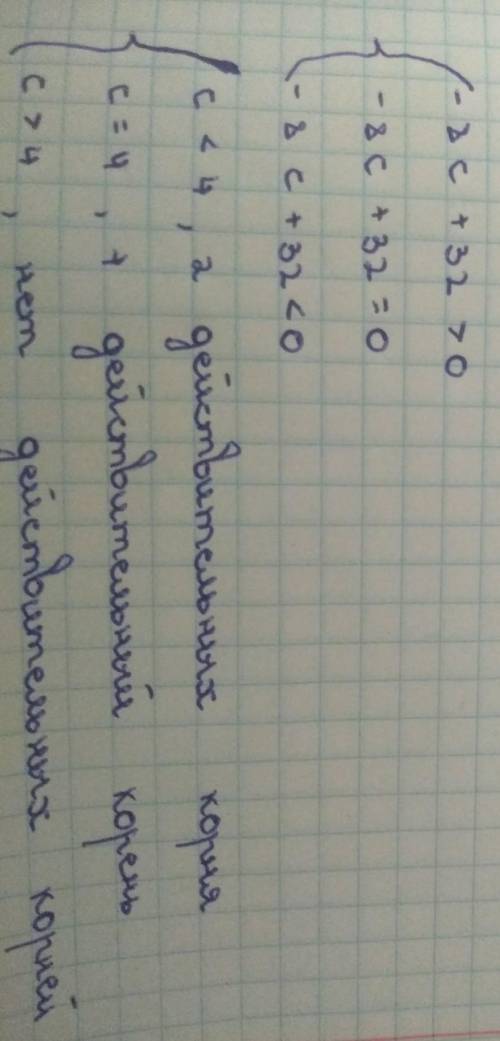 - 8c + 32 > 0
- 8c + 32 = 0
- 8c + 32 < 0
c < 4, 2 действительных корня
c = 4, 1 действительный корень
c > 4, нет действительных корней